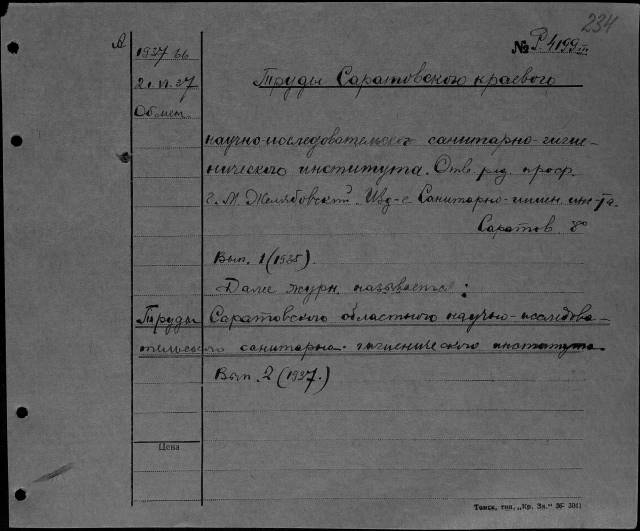 234
№ Р-4199 III
А
1937 г.
2.VI.37
Обмен
Труды Саратовского краевого
научно-исследовательского санитарно-гигие-
нического института. Отв. ред. проф.
Г. М. Желябовский. Изд-е Санитарно-гигиен. ин-та.
Саратов 8°
Вып. 1 (1935).
Далее журн. называется:
Труды Саратовского областного научно-исследова-
тельского санитарно-гигиенического института.
Вып. 2 (1937.)
Цена
Томск, тип. „Кр. Зн.“ 36